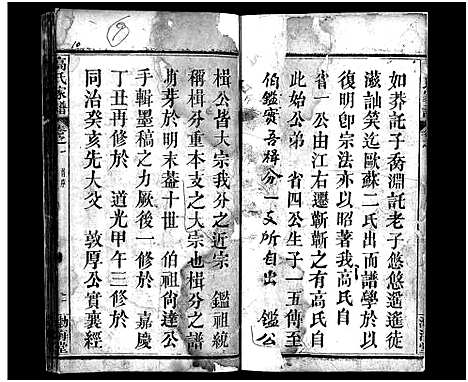 如莽託子喬淵託老子悠悠遥遥徒
滋訕笑迄歐蘇二氏出而譜學於以
復明卽宗法亦以昭著我高氏自
省一公由江右遷蘄蘄之有高氏自
此始公弟 省四公生子一五傳至
伯鑑賓吾楫分一支所自出 鑑公
楫公皆大宗我分之近宗 鑑祖統
稱楫分重本支之大宗也楫分之譜
萌芽於明末葢十世 伯祖尙達公
手輯墨稿之力厥後一修於 嘉慶
丁丑再修於 道光甲午三修於
同治癸亥先大父 敦厚公實襄經
高氏家譜
卷之一
渤海堂